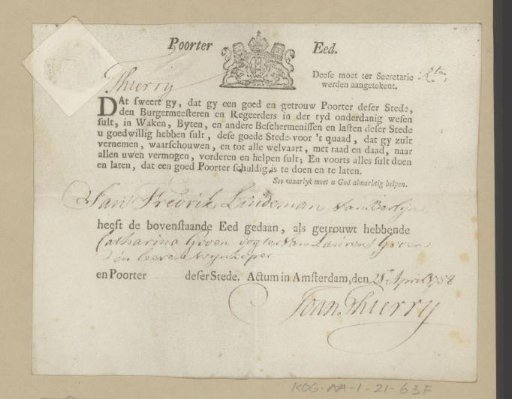 Poorter Eed.
Deese moet ter Secretarie
werden aangetekent.
Thierry
DAt sweert gy, dat gy een goed en getrouw Poorter deser Stede,
den Burgermeesteren en Regeerders in der tyd onderdanig wesen
sult, in Waken, Byten, en andere Beschermenissen en lasten deser Stede
u goedwillig hebben sult, dese goede Stede voor 't quaad, dat gy zult
vernemen, waarschouwen, en tot alle welvaart, met raad en daad, naar
allen uwen vermogen, vorderen en helpen sult; En voorts alles sult doen
en laten, dat een goed Poorter schuldig is te doen en te laten.
Soo waarlyk moet u God almachtig helpen.
Jan Fredrik Lindeman van
heeft de bovenstaande Eed gedaan, als getrouwt hebbende
Catharina Groen dogter van Laurens Groen
in leeven
en Poorter deser Stede. Actum in Amsterdam, den April
Joan Thierry
KOG-AA-1-21-63F